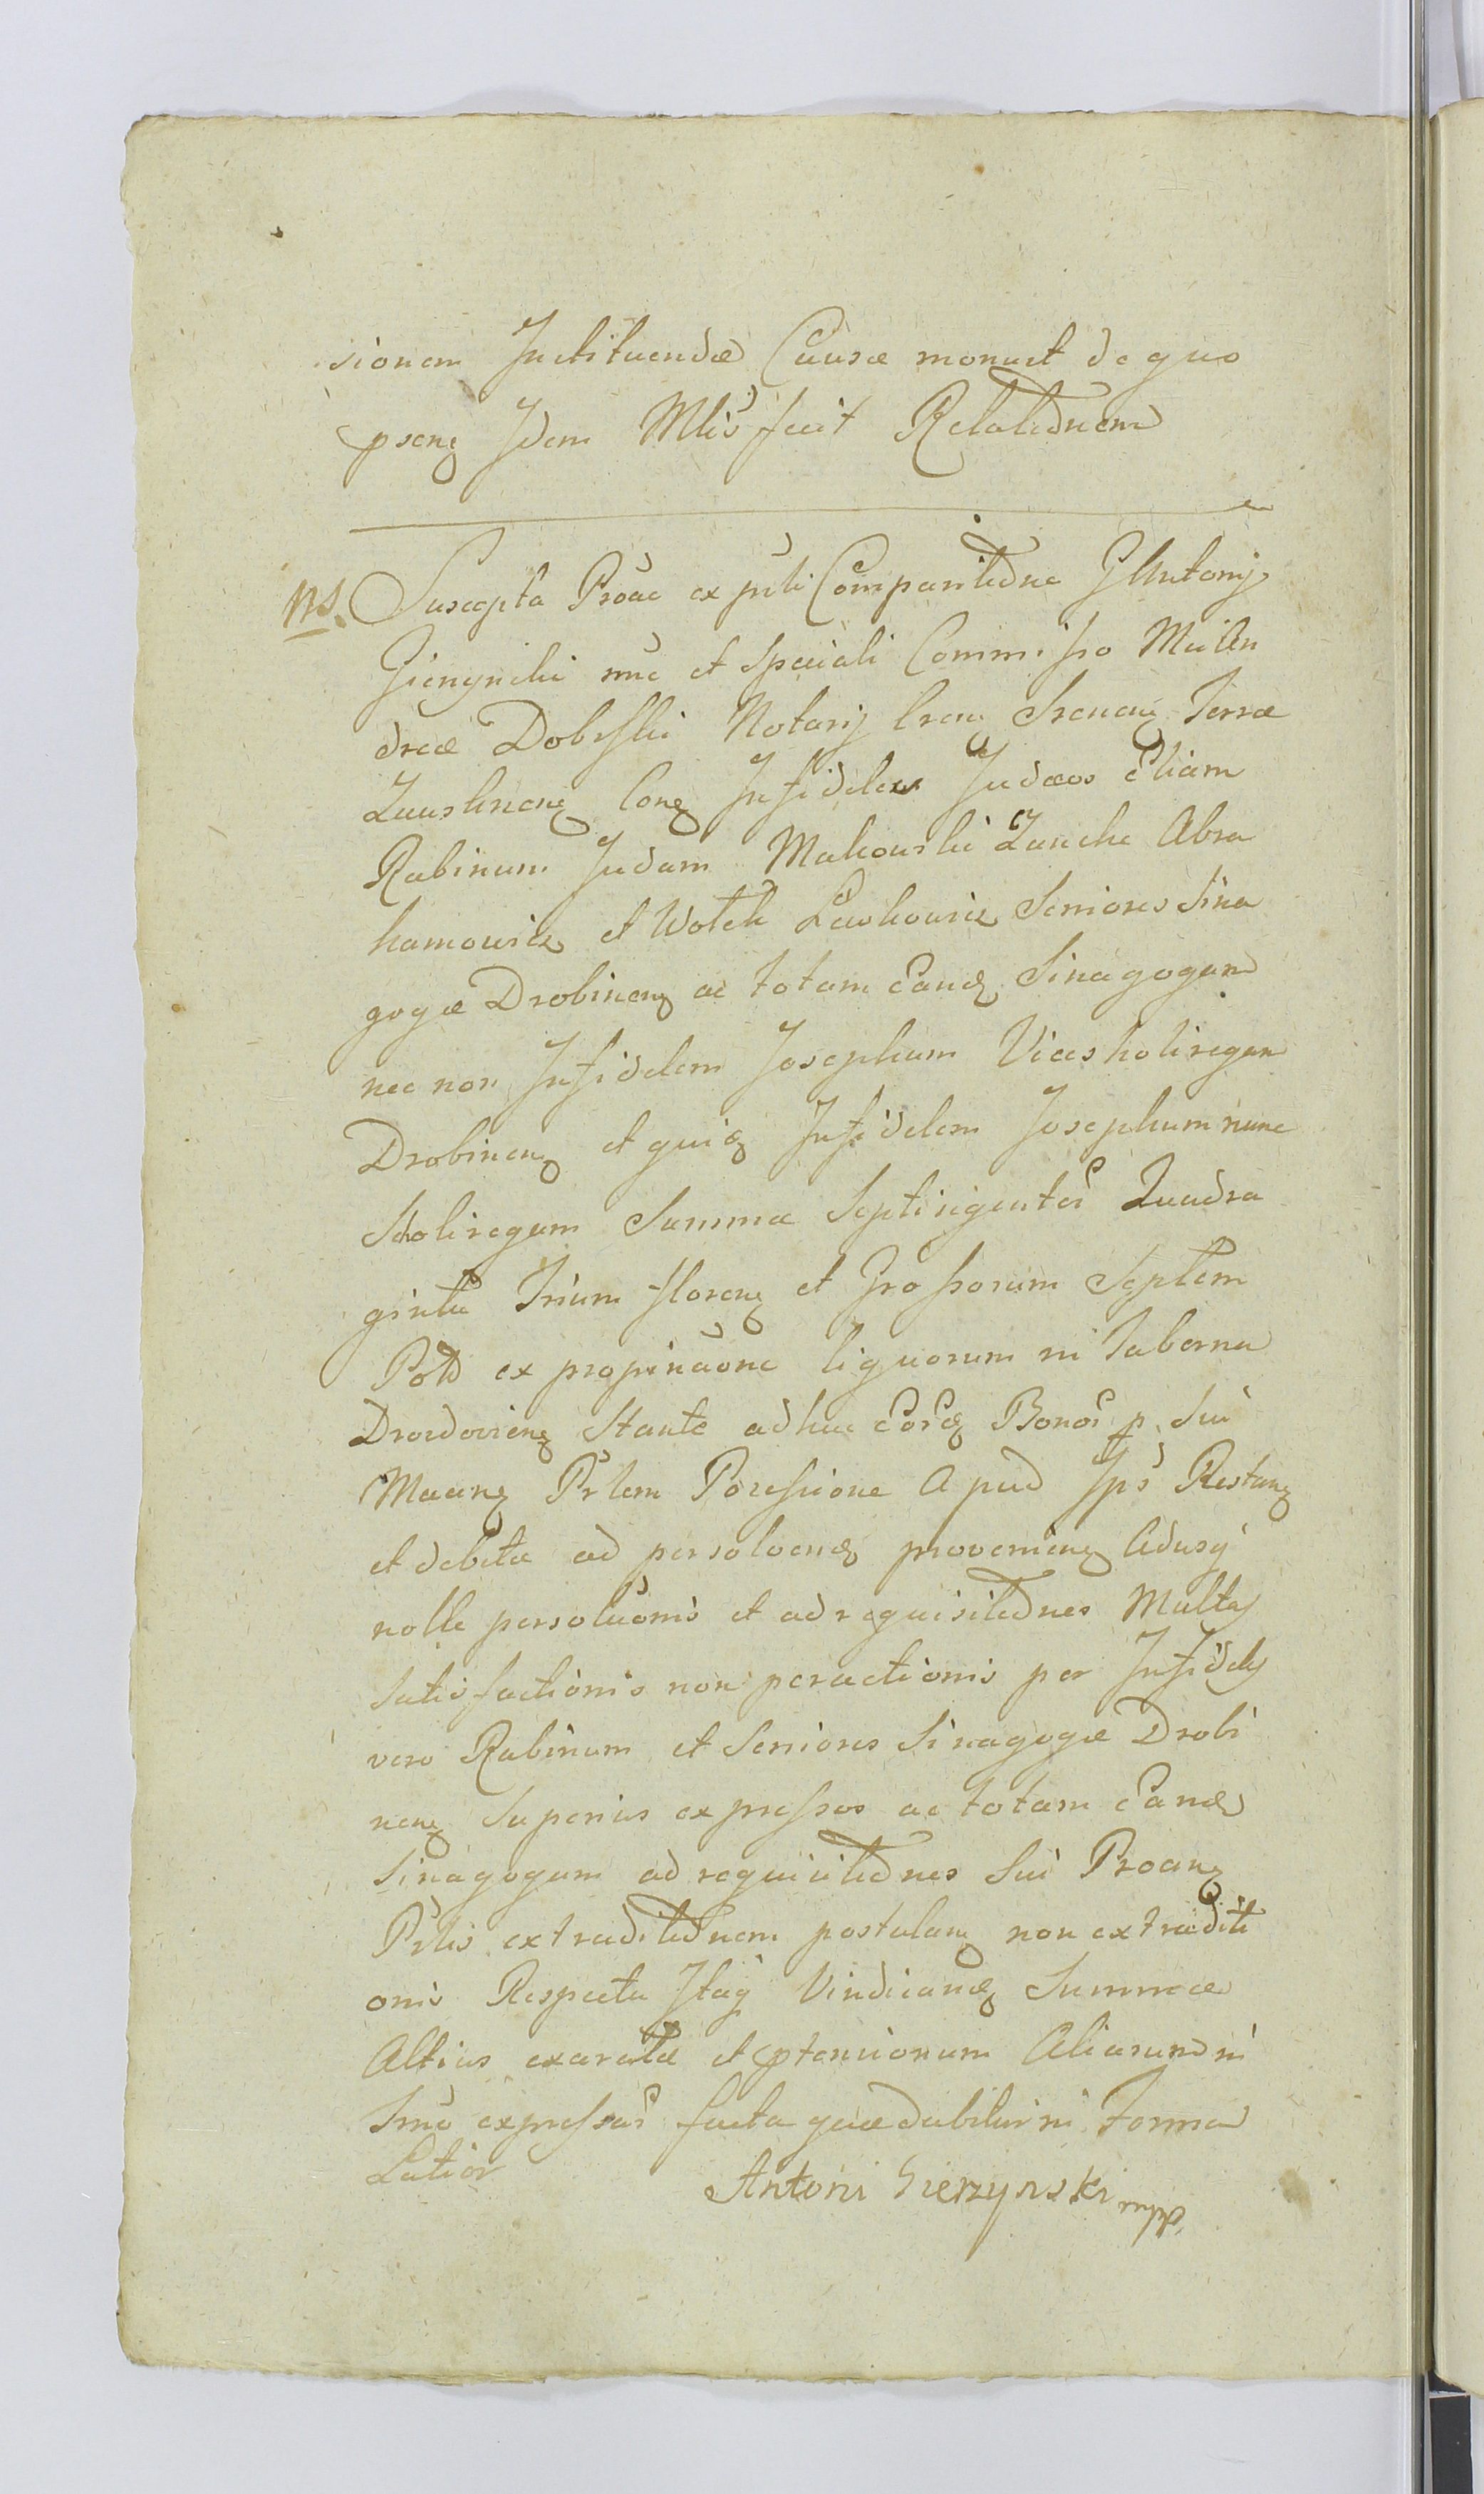 sionem Instituendæ Causæ monuit de quo
pseng Idem Mlis fecit Relationem
ns. Suscepta Proãe ex pnti Comparitione G Antonij
Gierzynski nnc et Speciali Commisso M Andreæ
dreæ Dobrski Notarij Creng Sreneng Terræ
Zawskrneng Coneg Infideles Judæos Eliam
Rabinum Judam Makowski Zanche Abra
hamowicz et Wolek Lewkowicz Seniores Sina
gogæ Drobineng ac totam eandz Sinagogam
nec non Infidelem Josephum Viceskolnegum
Drobineng et quidz Infidelem Josephum nunc
Skolnegum Summæ Septingentor Quadra
ginta Trium floreng et Grossorum Septem
Pold ex propinãone liquorum in Taberna
Drozdovieng Stante adhuc eordz Bonor p Sui
Maang Prlem Possessione Apud Ips Restang
et debitæ ad persolvendz provenieng Adusq
nolle persolũonis et ad requisitiones Multas
Satisfactionis non peractionis per Infidels
vero Rabinum et Seniores Sinagogæ Drobi
neng Superius expressos ac totam Eandz
Sinagogam ad requisitiones Sui Proang
Prlis extraditionem postulang non extraditi
onis Respectu Itaq Vindicandz Summæ
Altius exaratæ et prtensionum Aliarum in
Trno expressar facta quæ dabitur in Forma
Latior
Antoni Gierzynski mpp.